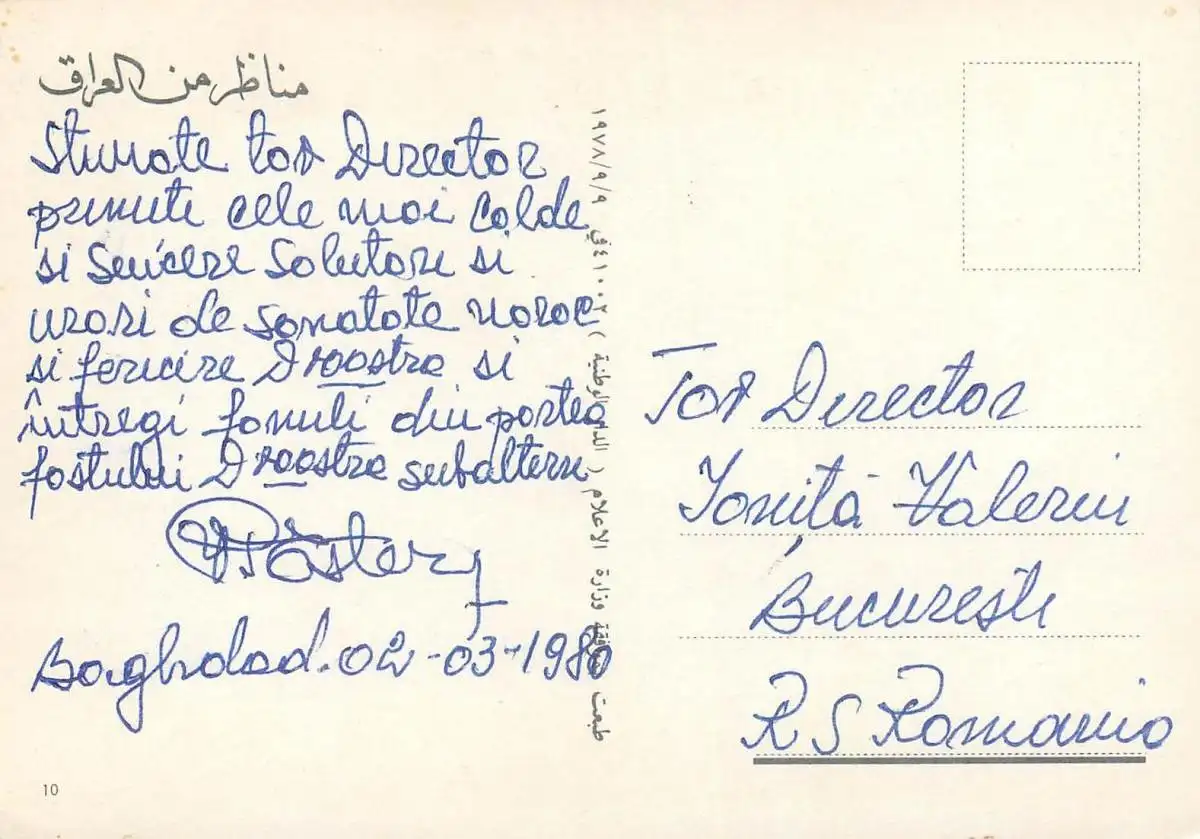 مناظر من العراق
Stimate tov Director
primiti cele mai calde
si sincere salutari si
urari de sanatate noroc
si fericire Dvoastra si
întregi familii din partea
fostului Dvoastra subaltern
Baghdad. 02-03-1980
طبعت بموافقة وزارة الاعلام ( الدار الوطنية ) ٤١٠٠٢ في ١٩٧٨/٩/٩
Tov Director
Ioniţă Valeriu
Bucureşti
R S Romania
10